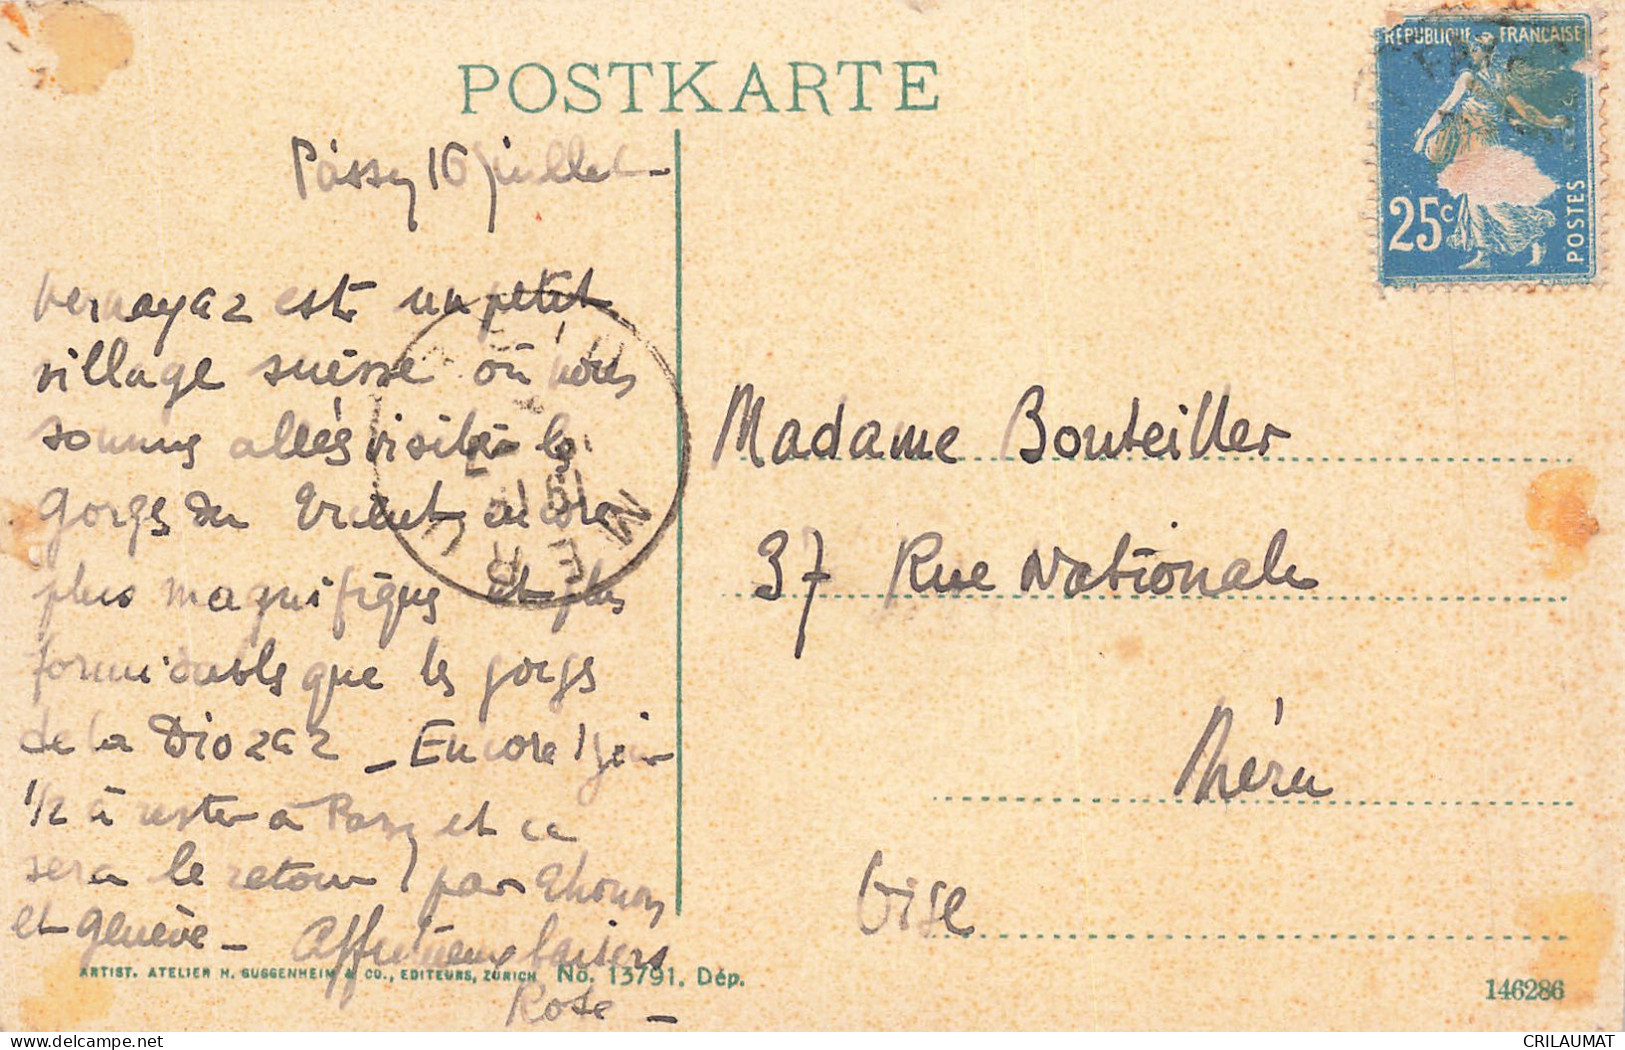 POSTKARTE
REPUBLIQUE FRANCAISE
25c
POSTES
Passy 16 juillet
Vernayaz est un petit
village suisse où nous
sommes allés visiter les
gorges du Trient encore
plus magnifiques et plus
formidables que les gorges
de la Diozaz _ Encore 1 jour
1/2 à rester à Passy et ce
sera le retour par Thonon
et Genève _ Affectueux baisers
Rose _
Madame Bouteiller
37 Rue Nationale
Méru
Oise
MERU
ARTIST. ATELIER H. GUGGENHEIM & CO., EDITEURS, ZÜRICH No. 13791. Dép.
146286
CRILAUMAT